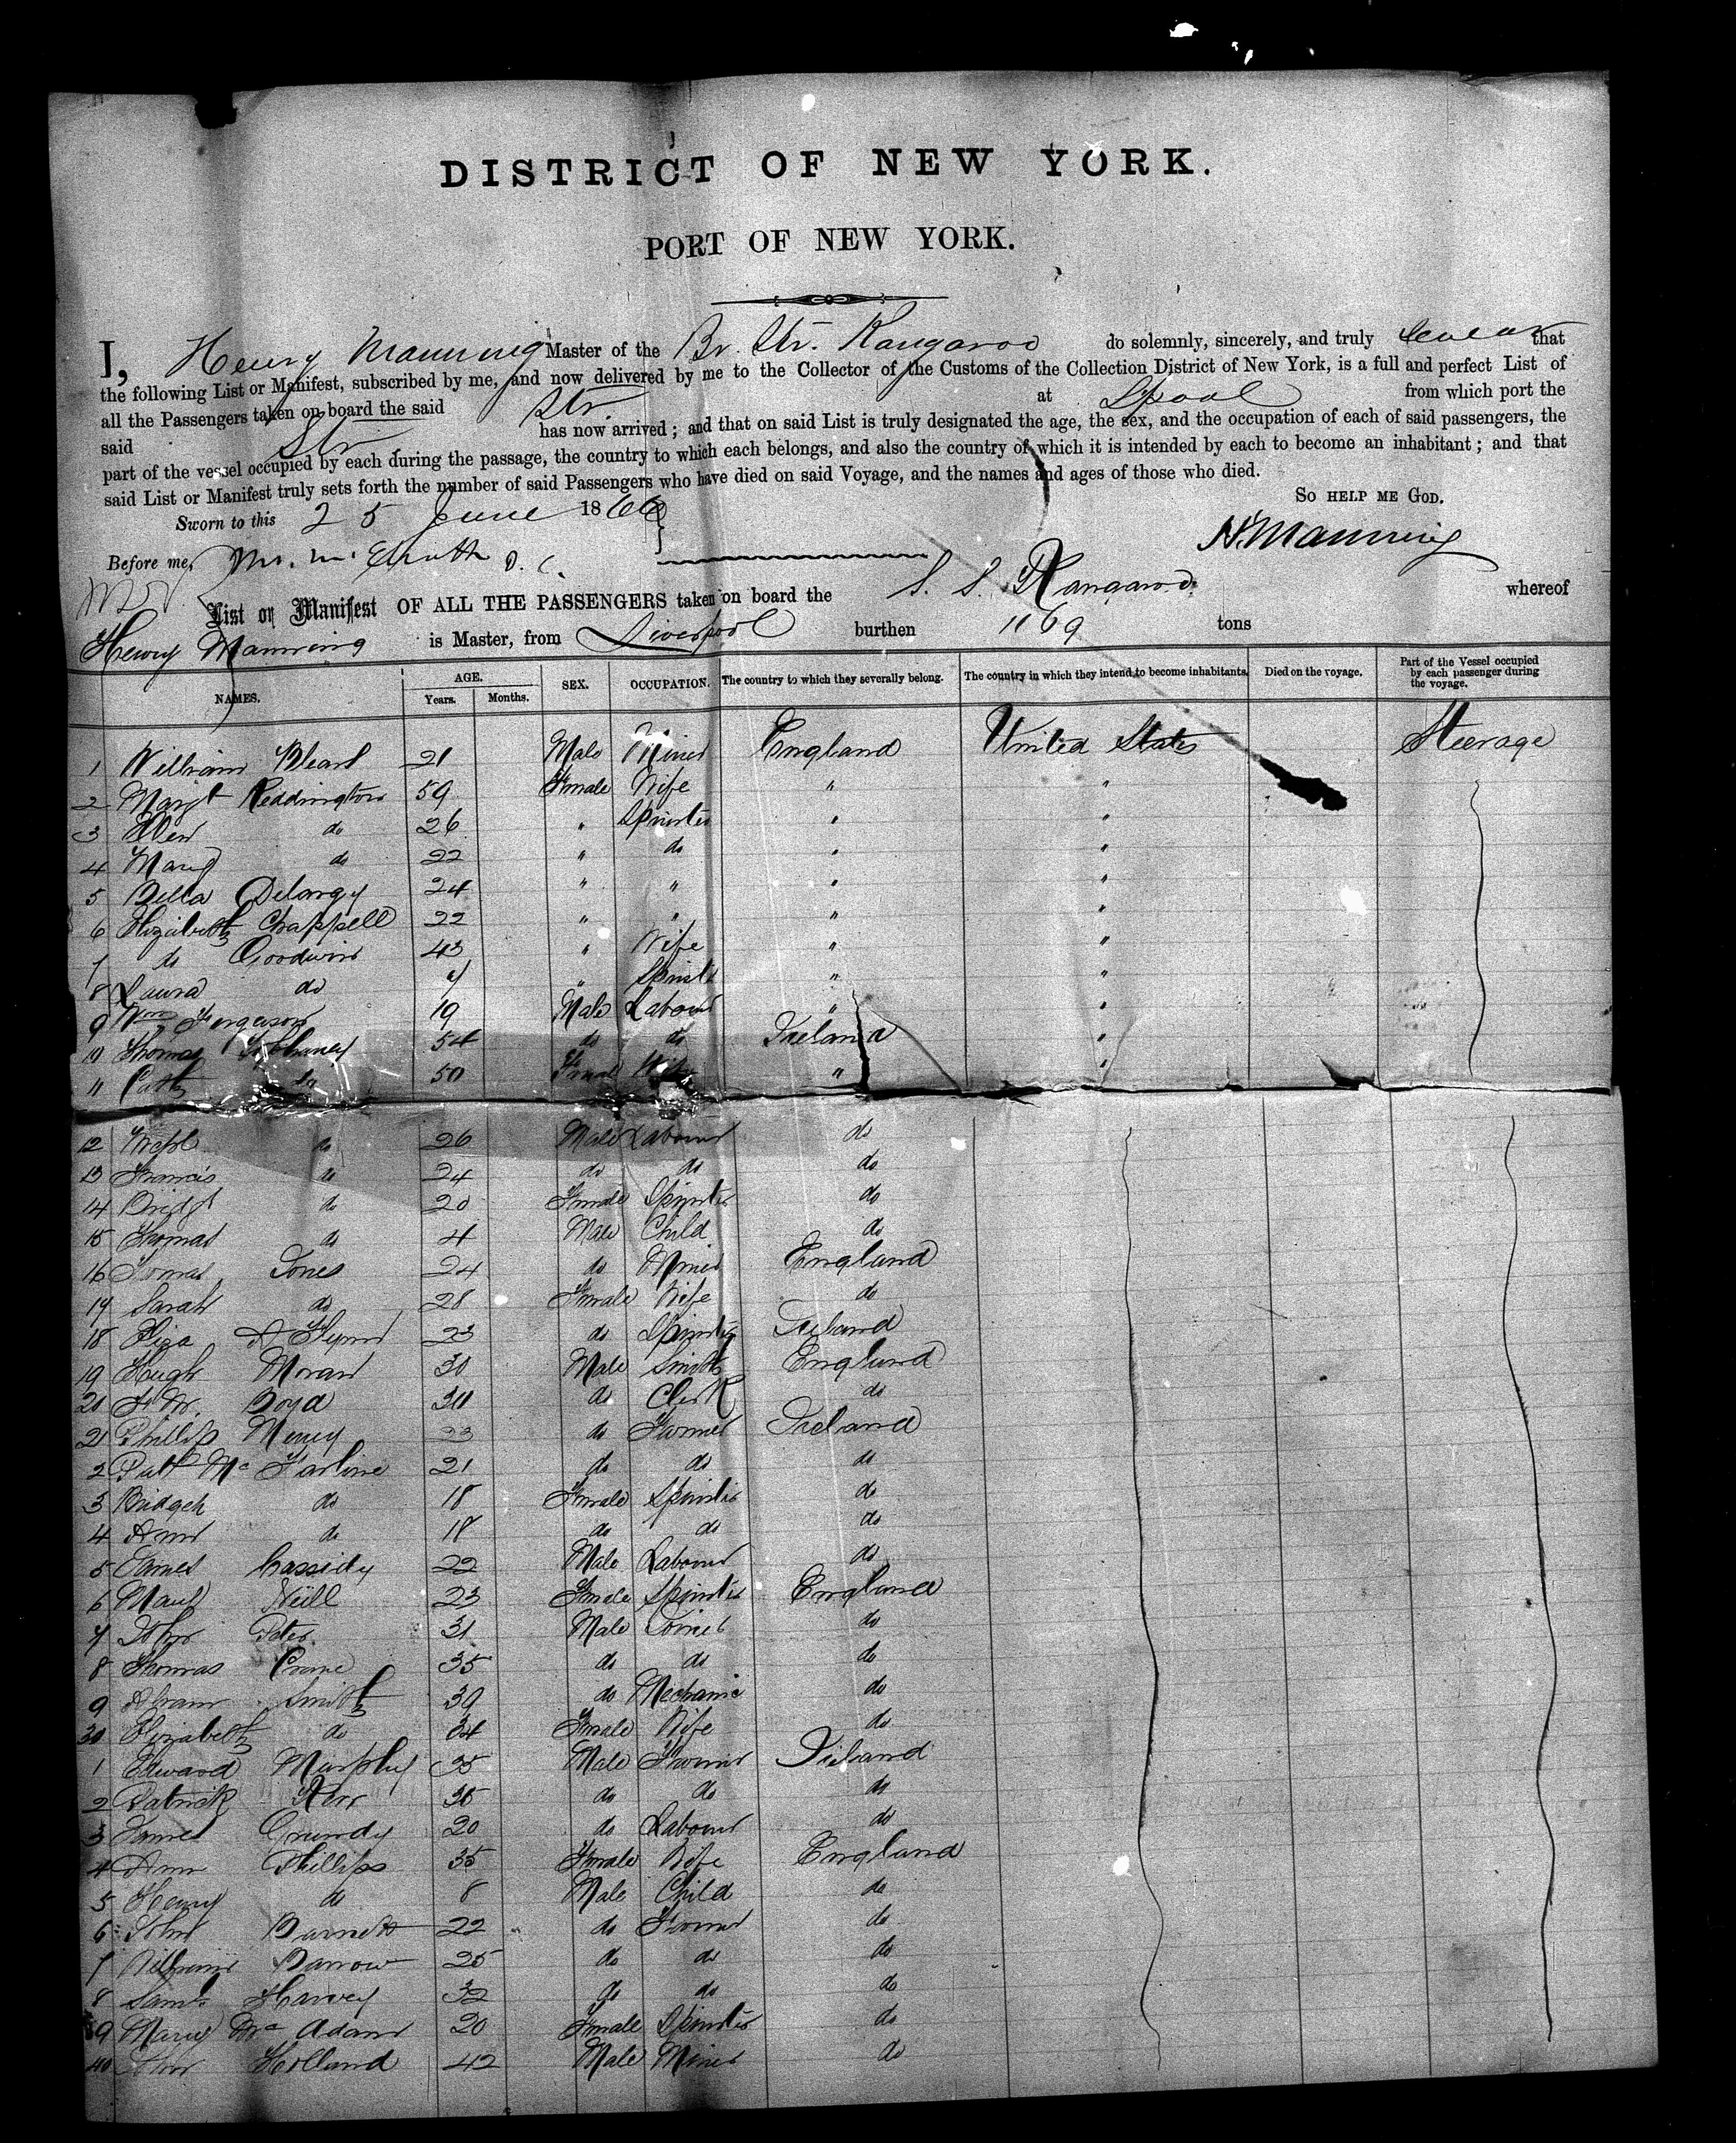 DISTRICT OF NEW YORK.
PORT OF NEW YORK.
I, Henry Manning Master of the Br. Str. Kangaroo do solemnly, sincerely, and truly swear that
the following List or Manifest, subscribed by me, and now delivered by me to the Collector of the Customs of the Collection District of New York, is a full and perfect List of
all the Passengers taken on board the said Str. at Lpool from which port the
said Str has now arrived; and that on said List is truly designated the age, the sex, and the occupation of each of said passengers, the
part of the vessel occupied by each during the passage, the country to which each belongs, and also the country of which it is intended by each to become an inhabitant; and that
said List or Manifest truly sets forth the number of said Passengers who have died on said Voyage, and the names and ages of those who died.
SO HELP ME GOD.
Sworn to this 25 June 1866
H. Manning
Before me, D. C.
List or Manifest OF ALL THE PASSENGERS taken on board the S. S. Kangaroo whereof
Henry Manning is Master, from Liverpool burthen 1169 tons
NAMES. AGE. Years. Months. SEX. OCCUPATION. The country to which they severally belong. The country in which they intend to become inhabitants. Died on the voyage. Part of the Vessel occupied by each passenger during the voyage.
1 William 21 Male Miner England United States Steerage
2 Margt Reddington 59 Female Wife " "
3 Ellen do 26 " Spinster " "
4 Mary do 22 " do " "
5 Bella Delargy 24 " " " "
6 Elizabeth Chappell 22 " " " "
7 do Goodwin 43 " Wife " "
8 Laura do " Spinst " "
9 Wm Ferguson 19 Male Labour " "
10 Thomas 54 do do Ireland "
11 Cath do 50 Female Wife " "
12 do 26 Male Labour do
13 Francis do 24 do do do
14 Bridgt do 20 Female Spinster do
15 Thomas do 4 Male Child do
16 Thomas Jones 24 do Miner England
17 Sarah do 28 Female Wife do
18 Eliza Flynn 23 do Spinster Ireland
19 Hugh Moran 30 Male Smith England
20 Boyd 30 do Clerk do
21 Phillip 23 do Farmer Ireland
2 Patk Mc Farline 21 do do do
3 Bridget do 18 Female Spinster do
4 Ann do 18 do do do
5 James Cassidy 22 Male Labour do
6 Mary Neill 23 Female Spinster England
7 John 31 Male do
8 Thomas Crane 35 do do do
9 Abram Smith 39 do Mechanic do
30 Elizabeth do 34 Female Wife do
1 Edward Murphy 35 Male Farmer Ireland
2 Patrick Kerr 35 do do do
3 James Grundy 20 do Labour do
4 Ann Phillips 35 Female Wife England
5 Henry do 8 Male Child do
6 John Barnett 22 do Farmer do
7 William Barrow 25 do do do
8 Saml Harvey 32 do do do
9 Mary Mc Adam 20 Female Spinster do
40 John Holland 42 Male Miner do